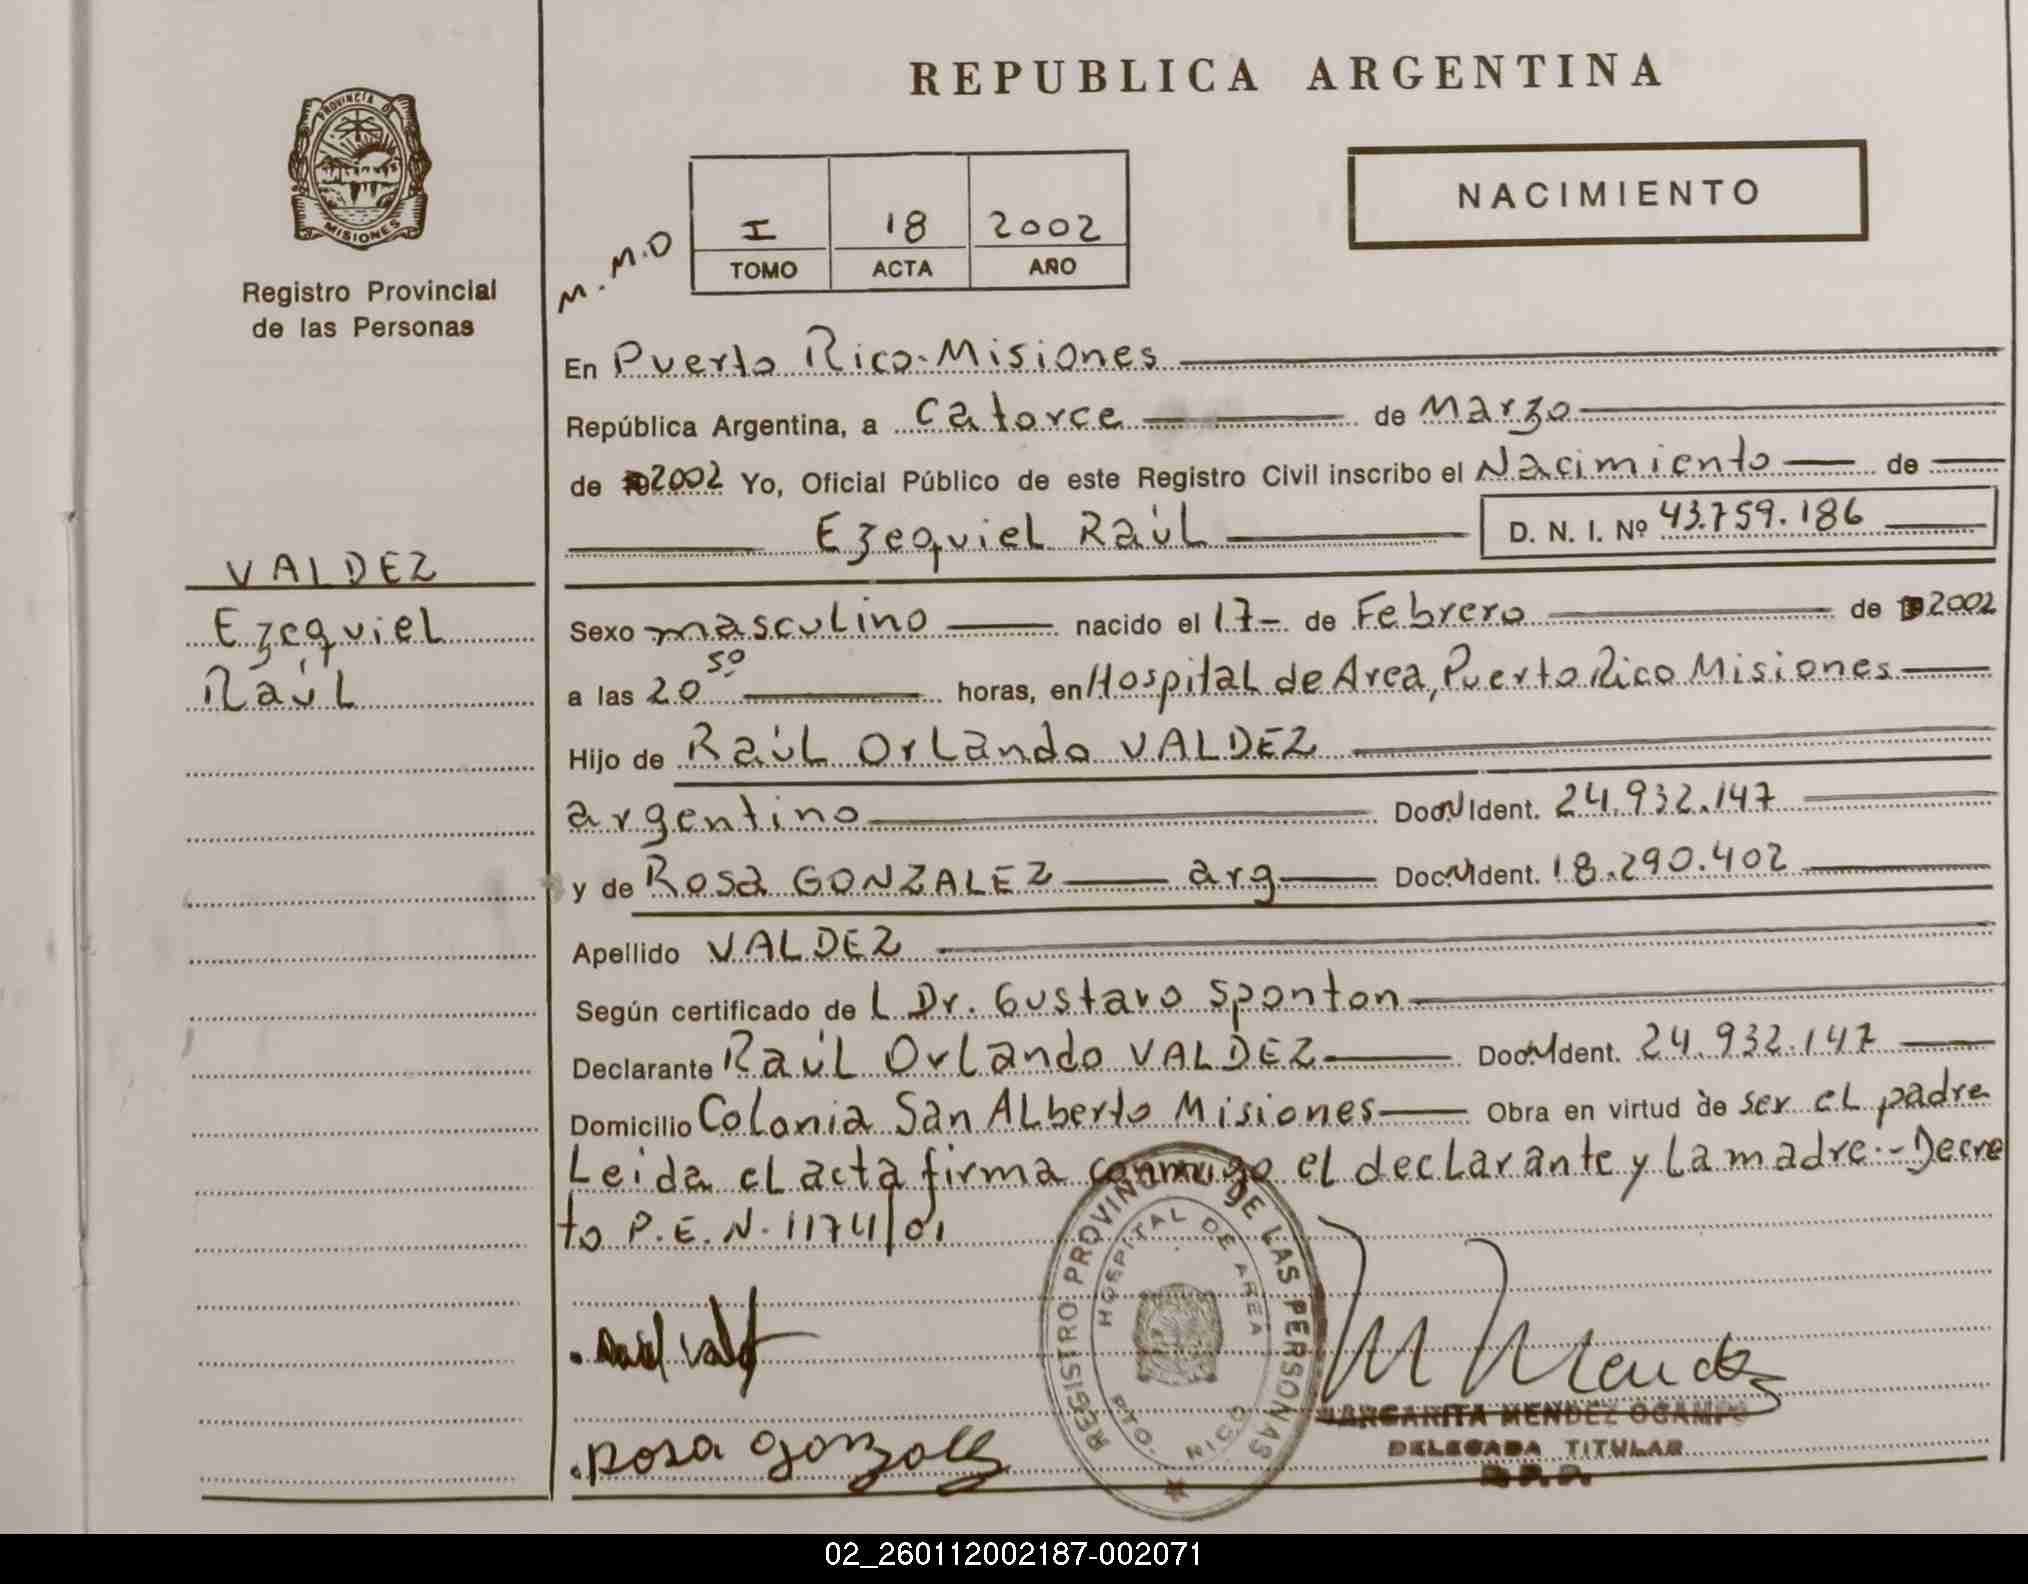 REPUBLICA ARGENTINA
PROVINCIA DE
MISIONES
Registro Provincial
de las Personas
NACIMIENTO
M.M.O
I 18 2002
TOMO ACTA AÑO
En Puerto Rico-Misiones
República Argentina, a Catorce de Marzo
de 2002 Yo, Oficial Público de este Registro Civil inscribo el Nacimiento de
Ezequiel Raúl D. N. I. Nº 43.759.186
VALDEZ
Ezequiel
Raúl
Sexo masculino nacido el 17- de Febrero de 2002
a las 20 50 horas, en Hospital de Area, Puerto Rico Misiones
Hijo de Raúl Orlando VALDEZ
argentino Doc. N Ident. 24.932.147
y de Rosa GONZALEZ arg Doc. N Ident. 18.290.402
Apellido VALDEZ
Según certificado de L Dr. Gustavo Sponton
Declarante Raúl Orlando VALDEZ Doc. N Ident. 24.932.147
Domicilio Colonia San ALberto Misiones Obra en virtud de ser el padre
Leida el acta firma conmigo el declarante y la madre.- Decre
to P.E.N. 1174/01
REGISTRO PROVINCIAL DE LAS PERSONAS
HOSPITAL DE AREA
PTO. RICO
Rosa Gonzalez
M Mendez
MARGARITA MENDEZ OCAMPO
DELEGADA TITULAR
02_260112002187-002071